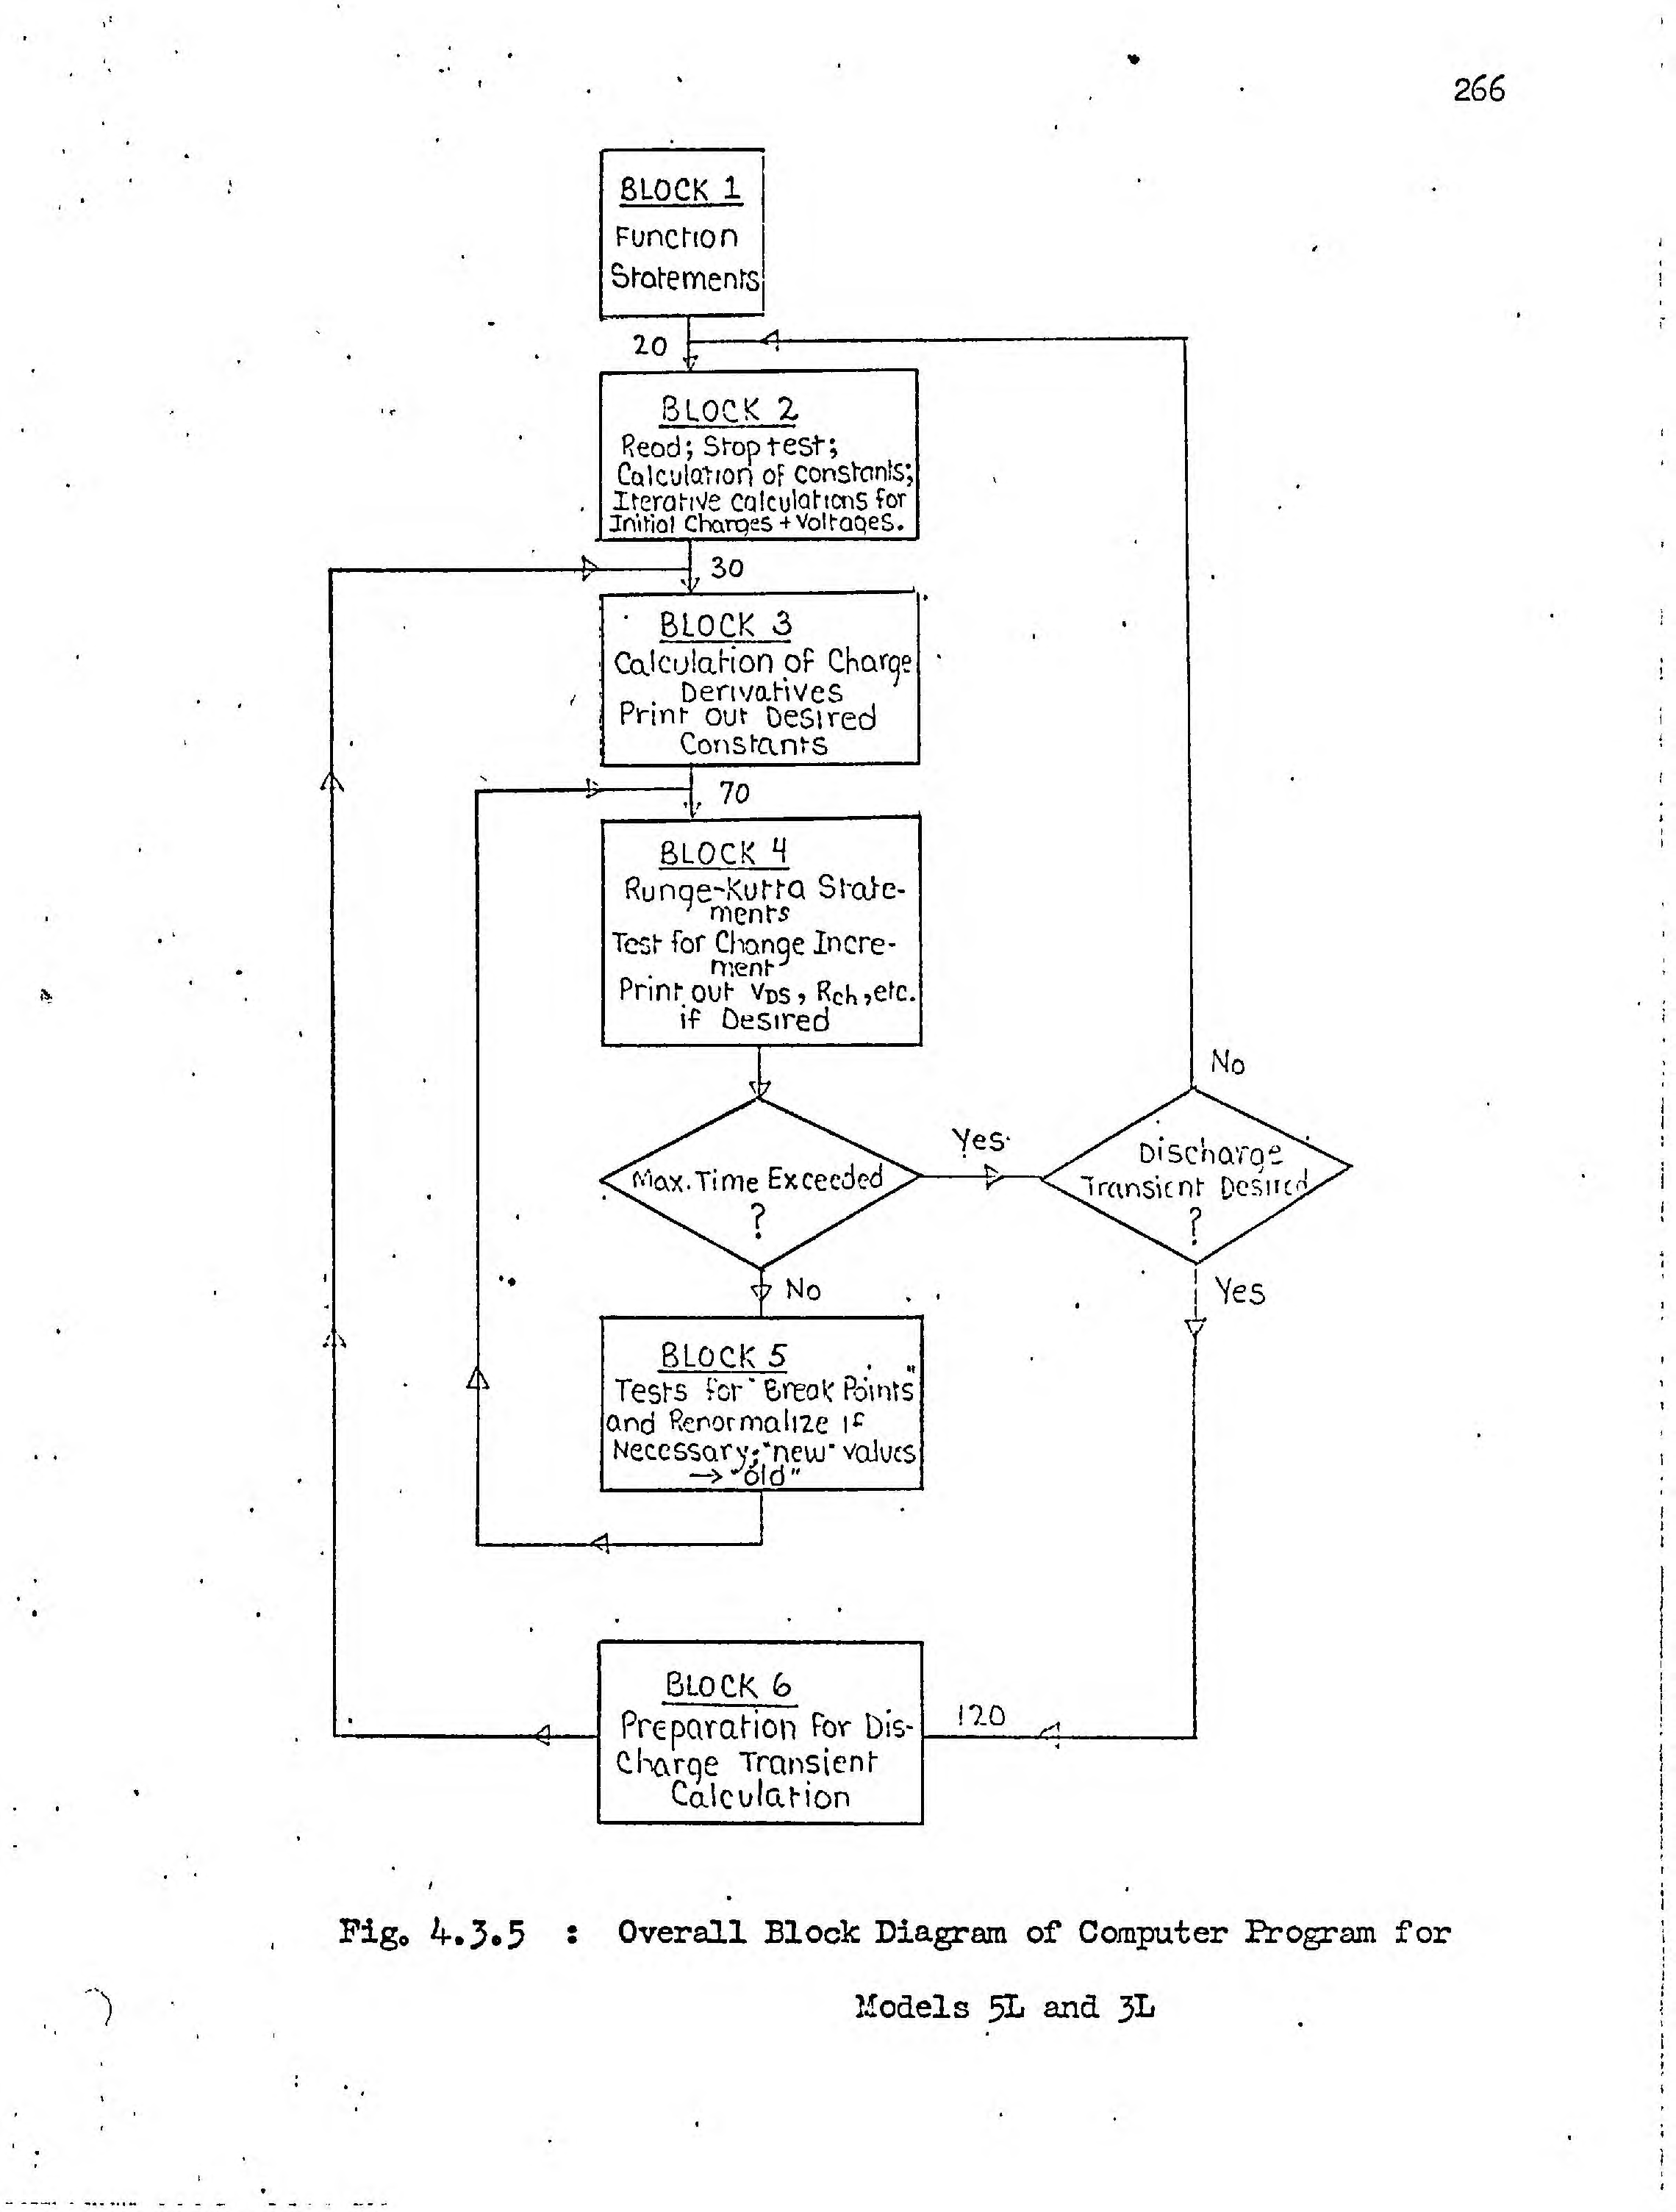 266
BLOCK 1
Function
Statements
20
BLOCK 2
Read; Stop test;
Calculation of constants;
Iterative calculations for
Initial Charges + Voltages.
30
BLOCK 3
Calculation of Charge
Derivatives
Print out Desired
Constants
70
BLOCK 4
Runge-Kutta State-
ments
Test for Change Incre-
ment
Print out VDS, Rch, etc.
if Desired
No
Yes
Max. Time Exceeded
?
Discharge
Transient Desired
?
No
Yes
BLOCK 5
Tests for "Break Points"
and Renormalize if
Necessary; "new" values
→ "old"
BLOCK 6
Preparation for Dis-
charge Transient
Calculation
120
Fig. 4.3.5 : Overall Block Diagram of Computer Program for
Models 5L and 3L